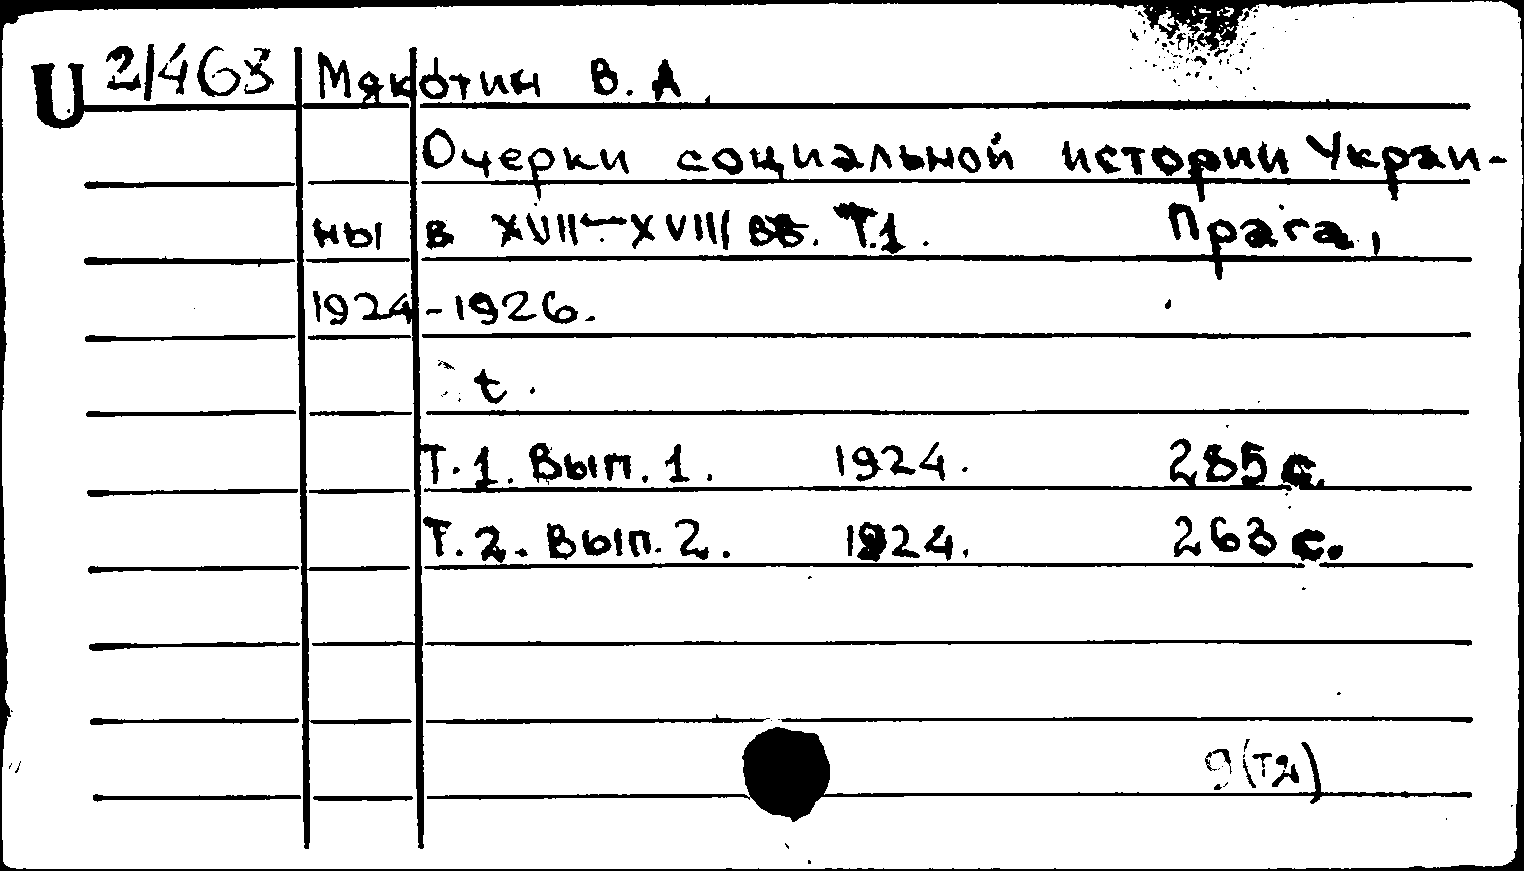 U 2/463 Мякотин В. А.
Очерки социальной истории Украи-
ны в XVII-XVIII вв. Т.1. Прага,
1924-1926.
t.
Т.1. Вып. 1. 1924. 285 с.
Т.2. Вып. 2. 1924. 263 с.
9(Т2)